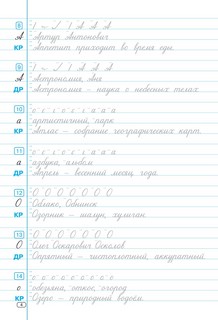 8
А А А А
А Артур Антонович
КР Аппетит приходит во время еды.
9
А А А А
А Астрономия, Аня
ДР Астрономия – наука о небесных телах.
10
а а а
а артистичный, парк
КР Атлас – собрание географических карт.
11
а а а
а азбука, альбом
ДР Апрель – весенний месяц года.
12
О О О О О О О
О Облако, Обнинск
КР Озорник – шалун, хулиган.
13
О О О О О О О
О Олег Оскарович Соколов
ДР Опрятный – чистоплотный, аккуратный.
14
о о о о о о о
о обезьяна, откос, огород
КР Озеро – природный водоём.
4